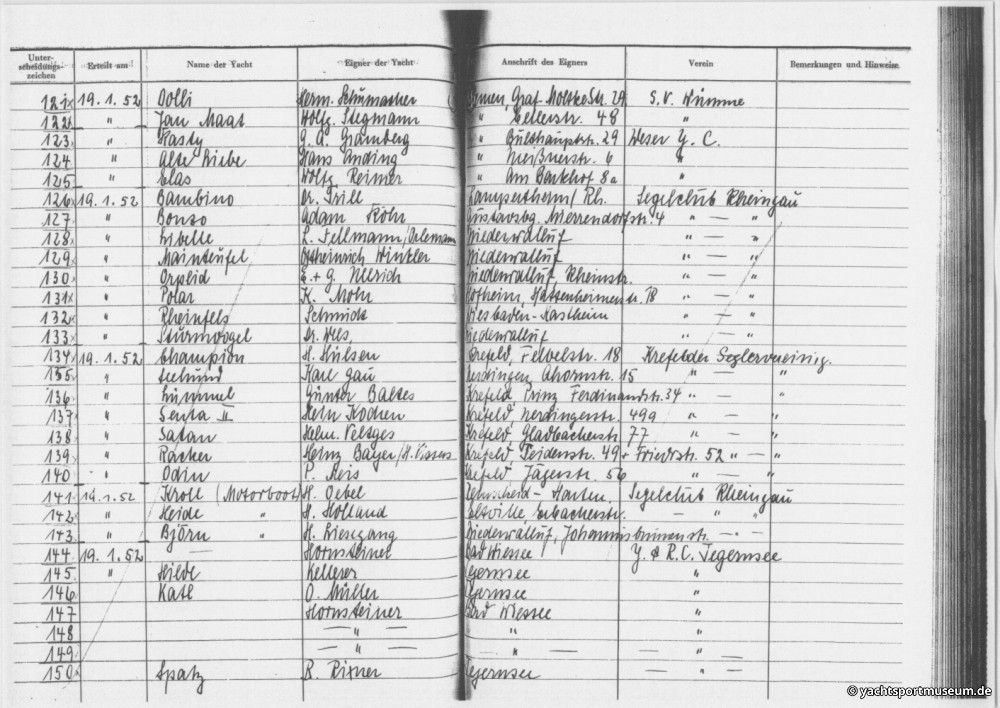 Unter-scheidungs-zeichen Erteilt am Name der Yacht Eigner der Yacht Anschrift des Eigners Verein Bemerkungen und Hinweise
121x 19.1.52 Dolli Herm. Schumacher Bremen, Graf Moltke Str. 29 S.V. Wümme
122 " Jan Maat Wolfg. Stegmann " Cellerstr. 48 "
123 " G. A. Gramberg " Buldhauptstr. 29 Weser Y. C.
124 " Alte Liebe Hans Anding " Meißnerstr. 6 "
125 " Elas Wolfg. Reimer " Am Barkhof 8a "
126 19.1.52 Bambino Dr. Trill Lampertheim/Rh. Segelclub Rheingau
127 " Bonzo Adam Köhr Gustavsbg. Str. 4 " — "
128 " Libelle L. Fellmann/ Niederwalluf " — "
129 " Mainteufel Ottheinrich Winkler Niederwalluf " — "
130 " Orplid E. + G. Ullrich Niederwalluf, Rheinstr. " — "
131x " Polar K. Mohr 18 " — "
132 " Rheinfels Schmidt Wiesbaden-Kastheim " — "
133 " Sturmvogel Dr. Niederwalluf " — "
134 19.1.52 Champion H. Hülsen Krefeld, 18 Krefelder Seglervereinig.
135 " Seehund Karl Gau Uerdingen, Ahornstr. 15 " — "
136 " Lümmel Günter Baltes Krefeld, Prinz Ferdinandstr. 34 " — "
137 " Senta II Kochen Krefeld, Uerdingerstr. 499 " — "
138 " Satan Helm. Veltges Krefeld, Gladbacherstr. 77 " — "
139 " Racker Heinz Bayer/H. Vissers Krefeld, 49 + Friedrstr. 52 " — "
140 " Odin P. Reis Krefeld Jägerstr. 56 " — "
141 19.1.52 Kroll (Motorboot) H. Oebel Segelclub Rheingau
142 " Heide " H. Holland Eltville, Erbacherstr. — " "
143 " Björn " H. Liesegang Niederwalluf, Johannisbrunnenstr. — " —
144 19.1.52 — Hornsteiner Bad Wiessee Y. & R.C. Tegernsee
145 " Hilde Kellerer Tegernsee "
146 Katl O. Müller Tegernsee "
147 Hornsteiner Bad Wiessee "
148 — " — " "
149 — " — — " — — " —
150x Spatz R. Rixner Tegernsee — " —
© yachtsportmuseum.de